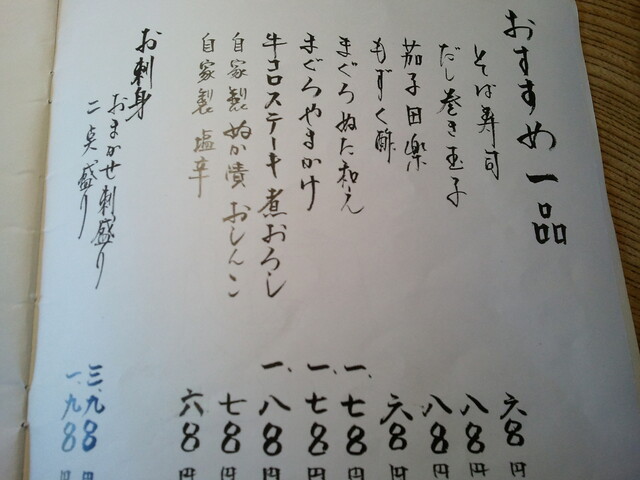 おすすめ一品
そば寿司 六8円
だし巻き玉子 八8円
茄子田楽 八8円
もずく酢 六8円
まぐろぬた和え 一、七8円
まぐろやまかけ 一、七8円
牛コロステーキ 煮おろし 一、八8円
自家製ぬか漬 おしんこ 七8円
自家製 塩辛 六8円
お刺身
おまかせ刺盛り 三、九8円
二点盛り 一、九8円